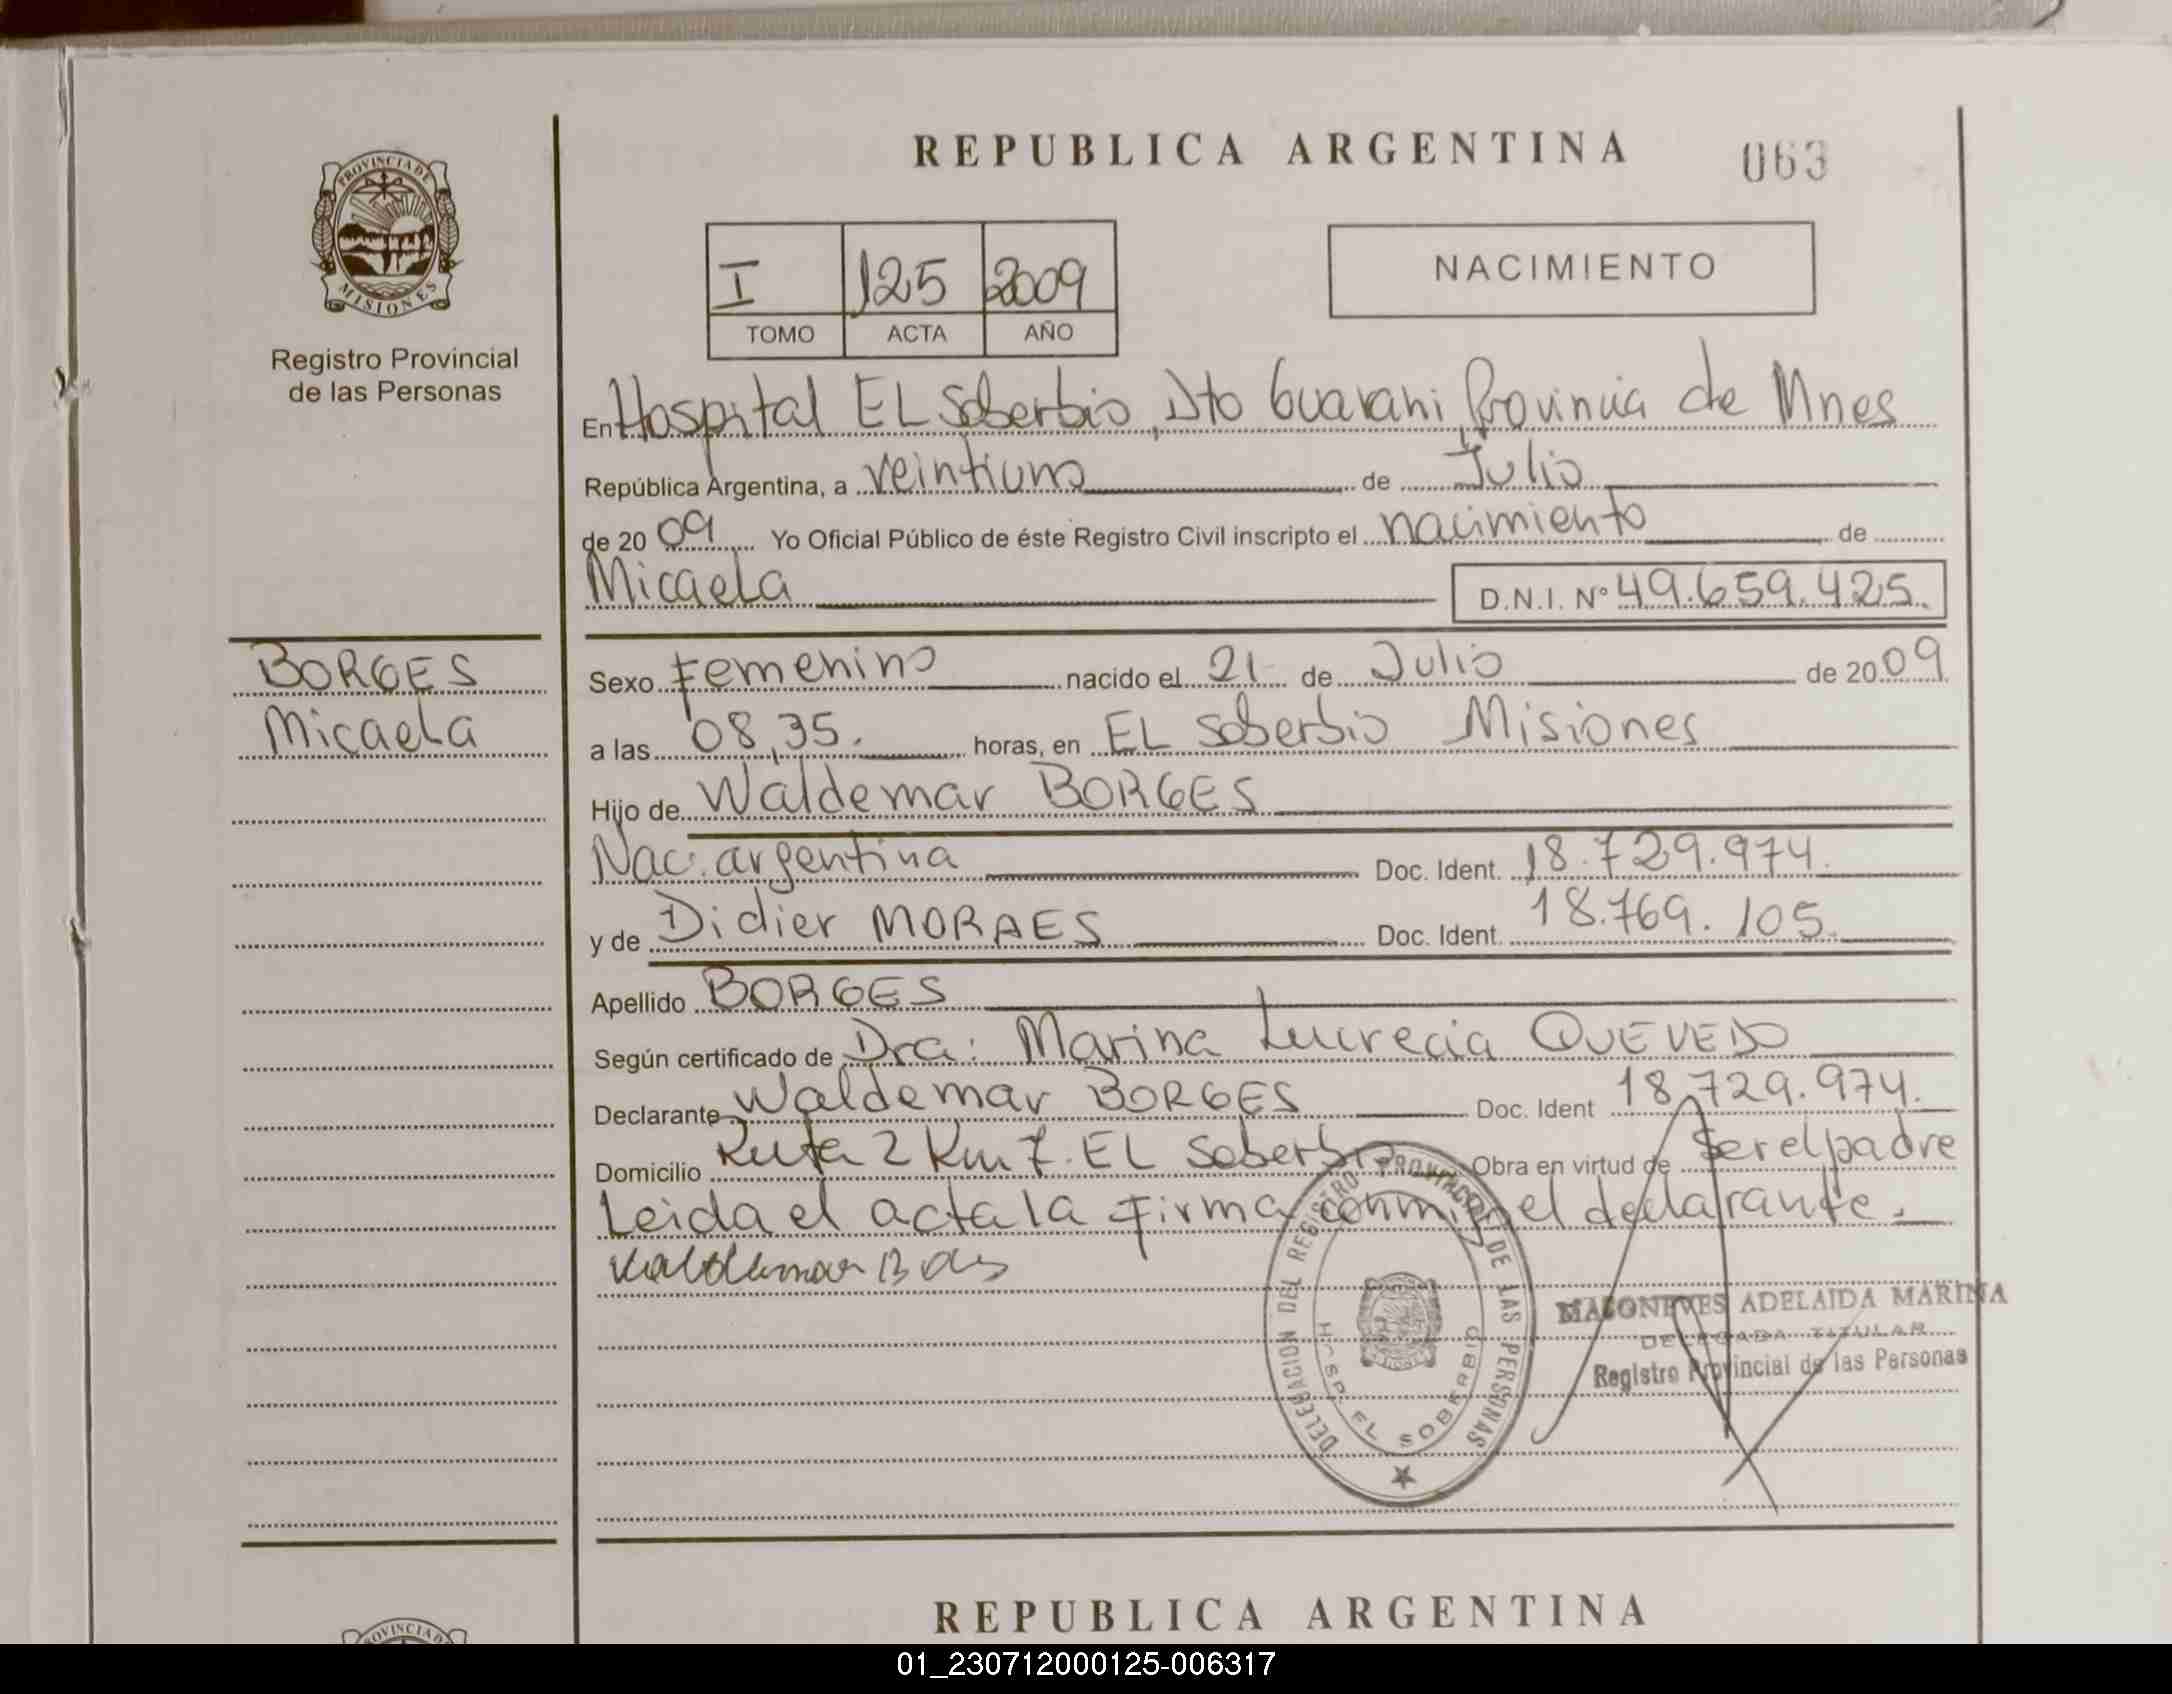 REPUBLICA ARGENTINA
063
PROVINCIA DE MISIONES
Registro Provincial
de las Personas
I 125 2009
TOMO ACTA AÑO
NACIMIENTO
En Hospital EL Soberbio, Dto Guarani, Provincia de Mnes
República Argentina, a veintiuno de Julio
de 20 09 Yo Oficial Público de éste Registro Civil inscripto el nacimiento de
Micaela D.N.I. Nº 49.659.425.
BORGES
Micaela
Sexo Femenino nacido el 21 de Julio de 20 09
a las 08,35. horas, en EL Soberbio Misiones
Hijo de Waldemar BORGES
Nac. argentina Doc. Ident. 18.729.974.
y de Didier MORAES Doc. Ident. 18.769.105.
Apellido BORGES
Según certificado de Dra: Marina Lucrecia QUEVEDO
Declarante Waldemar BORGES Doc. Ident 18.729.974.
Domicilio Ruta 2 Km 7. EL Soberbio Obra en virtud de Ser el padre
Leida el acta la firma conmigo el declarante.
DELEGACION DEL REGISTRO PROVINCIAL DE LAS PERSONAS
HOSP. EL SOBERBIO
ADELAIDA MARINA
DELEGADA TITULAR
Registro Provincial de las Personas
REPUBLICA ARGENTINA
01_230712000125-006317